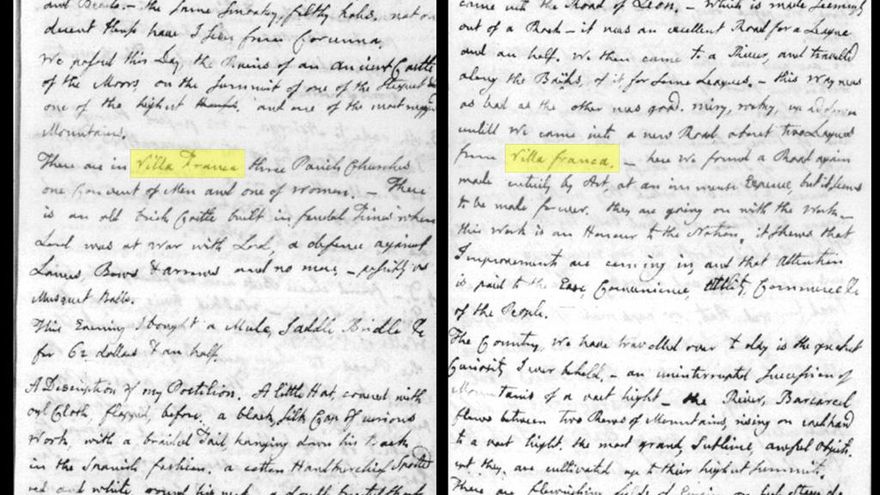 and Beds. — the same smoaky, filthy holes. not one
decent House have I seen from Corunna.
We passed this Day, the Ruins of an ancient Castle
of the Moors, on the Summit of one of the steepest and
one of the highest and one of the most rugged
Mountains.
There are in Villa Franca three Parish Churches
one Convent of Men and one of women. — There
is an old brick Castle built in feudal Times when
Lord was at war with Lord, a defence against
Lances, Bows & arrows and no more, — possibly vs
Musquet Balls.
This Evening I bought a Mule, Saddle Bridle &c
for 62 dollars & an half.
A Description of my Postilion. A little Hat, covered with
oyl Cloth, flapped, before, a black, silk Cap of curious
Work, with a braided Tail, hanging down his back
in the Spanish fashion. a cotton Handkerchief Spotted
red and white around his neck. a double breasted short
came into the Road of Leon. — Which is made seemingly
out of a Rock — it was an excellent Road for a League
and an half. We then came to a River, and travelled
along the Banks, of it for some Leagues. — this Way was
as bad as the other was good. miry, rocky, up and down
untill We came into a new Road about two Leagues
from Villa franca. — here We found a Road again
made entirely by Art, at an immense Expence, but it seems
to be made forever. they are going on with the Work —
this Work is an Honour to the Nation. it shews that
Improvements are coming in, and that Attention
is paid to the Ease, Convenience, Utility, Commerce &c
of the People.
The Country, We have travelled over to day is the greatest
Curiosity I ever beheld, — an uninterrupted Succession of
Mountains of a vast hight — the River, Barcarcel
flows between two Rows of Mountains, rising on each hand
to a vast hight. the most grand, sublime, awful objects.
yet they, are cultivated up to their highest Summits.
There are flourishing fields of Grain, on such steep de